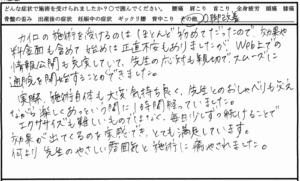 どんな症状で施術を受けられましたか?○で囲んでください。 肩こり 首こり 全身疲労 腰痛 膝痛
骨盤の歪み 出産後の症状 妊娠中の症状 ギックリ腰 背中こり その他
カイロの施術を受けるのは（ほとんど）初めてだったので、効果や
料金面も含めて始めは正直不安もありましたが、Web上での
情報公開も充実していて、先生の応対も親切でスムーズに
通院を開始することができました。
実際、施術自体も大変気持ち良く、先生とのおしゃべりも交え
ながら楽しくあっという間に1時間経っていました。
エクササイズも難しいものではなく、毎日少しずつ続けることで
効果が出てくるのを実感でき、とても満足しています。
何より先生のやさしい雰囲気と施術に癒やされました。